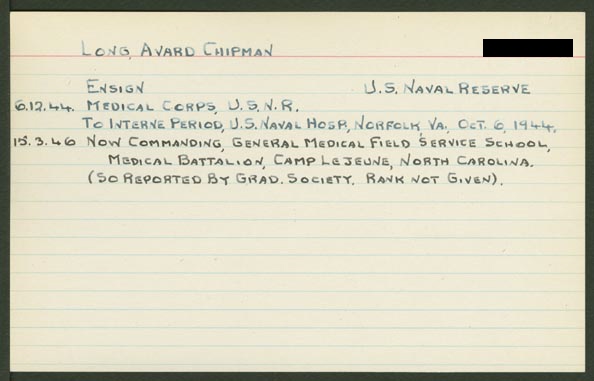 LONG, AVARD CHIPMAN
ENSIGN U.S. NAVAL RESERVE
6.12.44. MEDICAL CORPS, U.S.N.R.
TO INTERNE PERIOD, U.S. NAVAL HOSP, NORFOLK, VA. OCT. 6, 1944.
15.3.46 NOW COMMANDING, GENERAL MEDICAL FIELD SERVICE SCHOOL,
MEDICAL BATTALION, CAMP LEJEUNE, NORTH CAROLINA.
(SO REPORTED BY GRAD. SOCIETY. RANK NOT GIVEN).